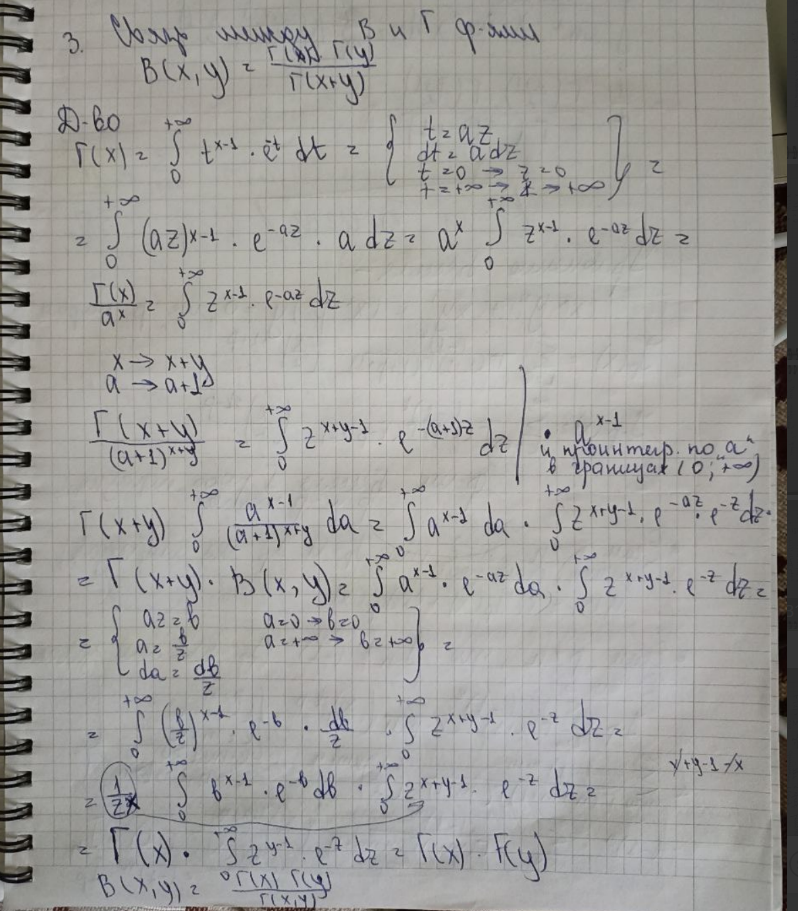 3. Связь между B и Г ф-ями
B(x,y) = Г(x) Г(y) / Г(x+y)
Д-во
Г(x) = ∫₀^{+∞} t^{x-1} · e^{-t} dt = { t = az
dt = a dz
t=0 → z=0
t=+∞ → z → +∞ } =
= ∫₀^{+∞} (az)^{x-1} · e^{-az} · a dz = a^x ∫₀^{+∞} z^{x-1} · e^{-az} dz =
Г(x) / a^x = ∫₀^{+∞} z^{x-1} · e^{-az} dz
x → x+y
a → a+1
Г(x+y) / (a+1)^{x+y} = ∫₀^{+∞} z^{x+y-1} · e^{-(a+1)z} dz | · a^{x-1}
и проинтегр. по "a"
в границах (0; +∞)
Г(x+y) ∫₀^{+∞} a^{x-1} / (a+1)^{x+y} da = ∫₀^{+∞} a^{x-1} da · ∫₀^{+∞} z^{x+y-1} · e^{-az} · e^{-z} dz =
= Г(x+y) · B(x,y) = ∫₀^{+∞} a^{x-1} · e^{-az} da · ∫₀^{+∞} z^{x+y-1} · e^{-z} dz =
= { az = b a=0 → b=0
a = b/z a=+∞ → b=+∞
da = db/z } =
= ∫₀^{+∞} (b/z)^{x-1} · e^{-b} · db/z · ∫₀^{+∞} z^{x+y-1} · e^{-z} dz =
x+y-1-x
= 1/z^x ∫₀^{+∞} b^{x-1} · e^{-b} db · ∫₀^{+∞} z^{x+y-1} · e^{-z} dz =
= Г(x) · ∫₀^{+∞} z^{y-1} · e^{-z} dz = Г(x) · Г(y)
B(x,y) = Г(x) Г(y) / Г(x,y)